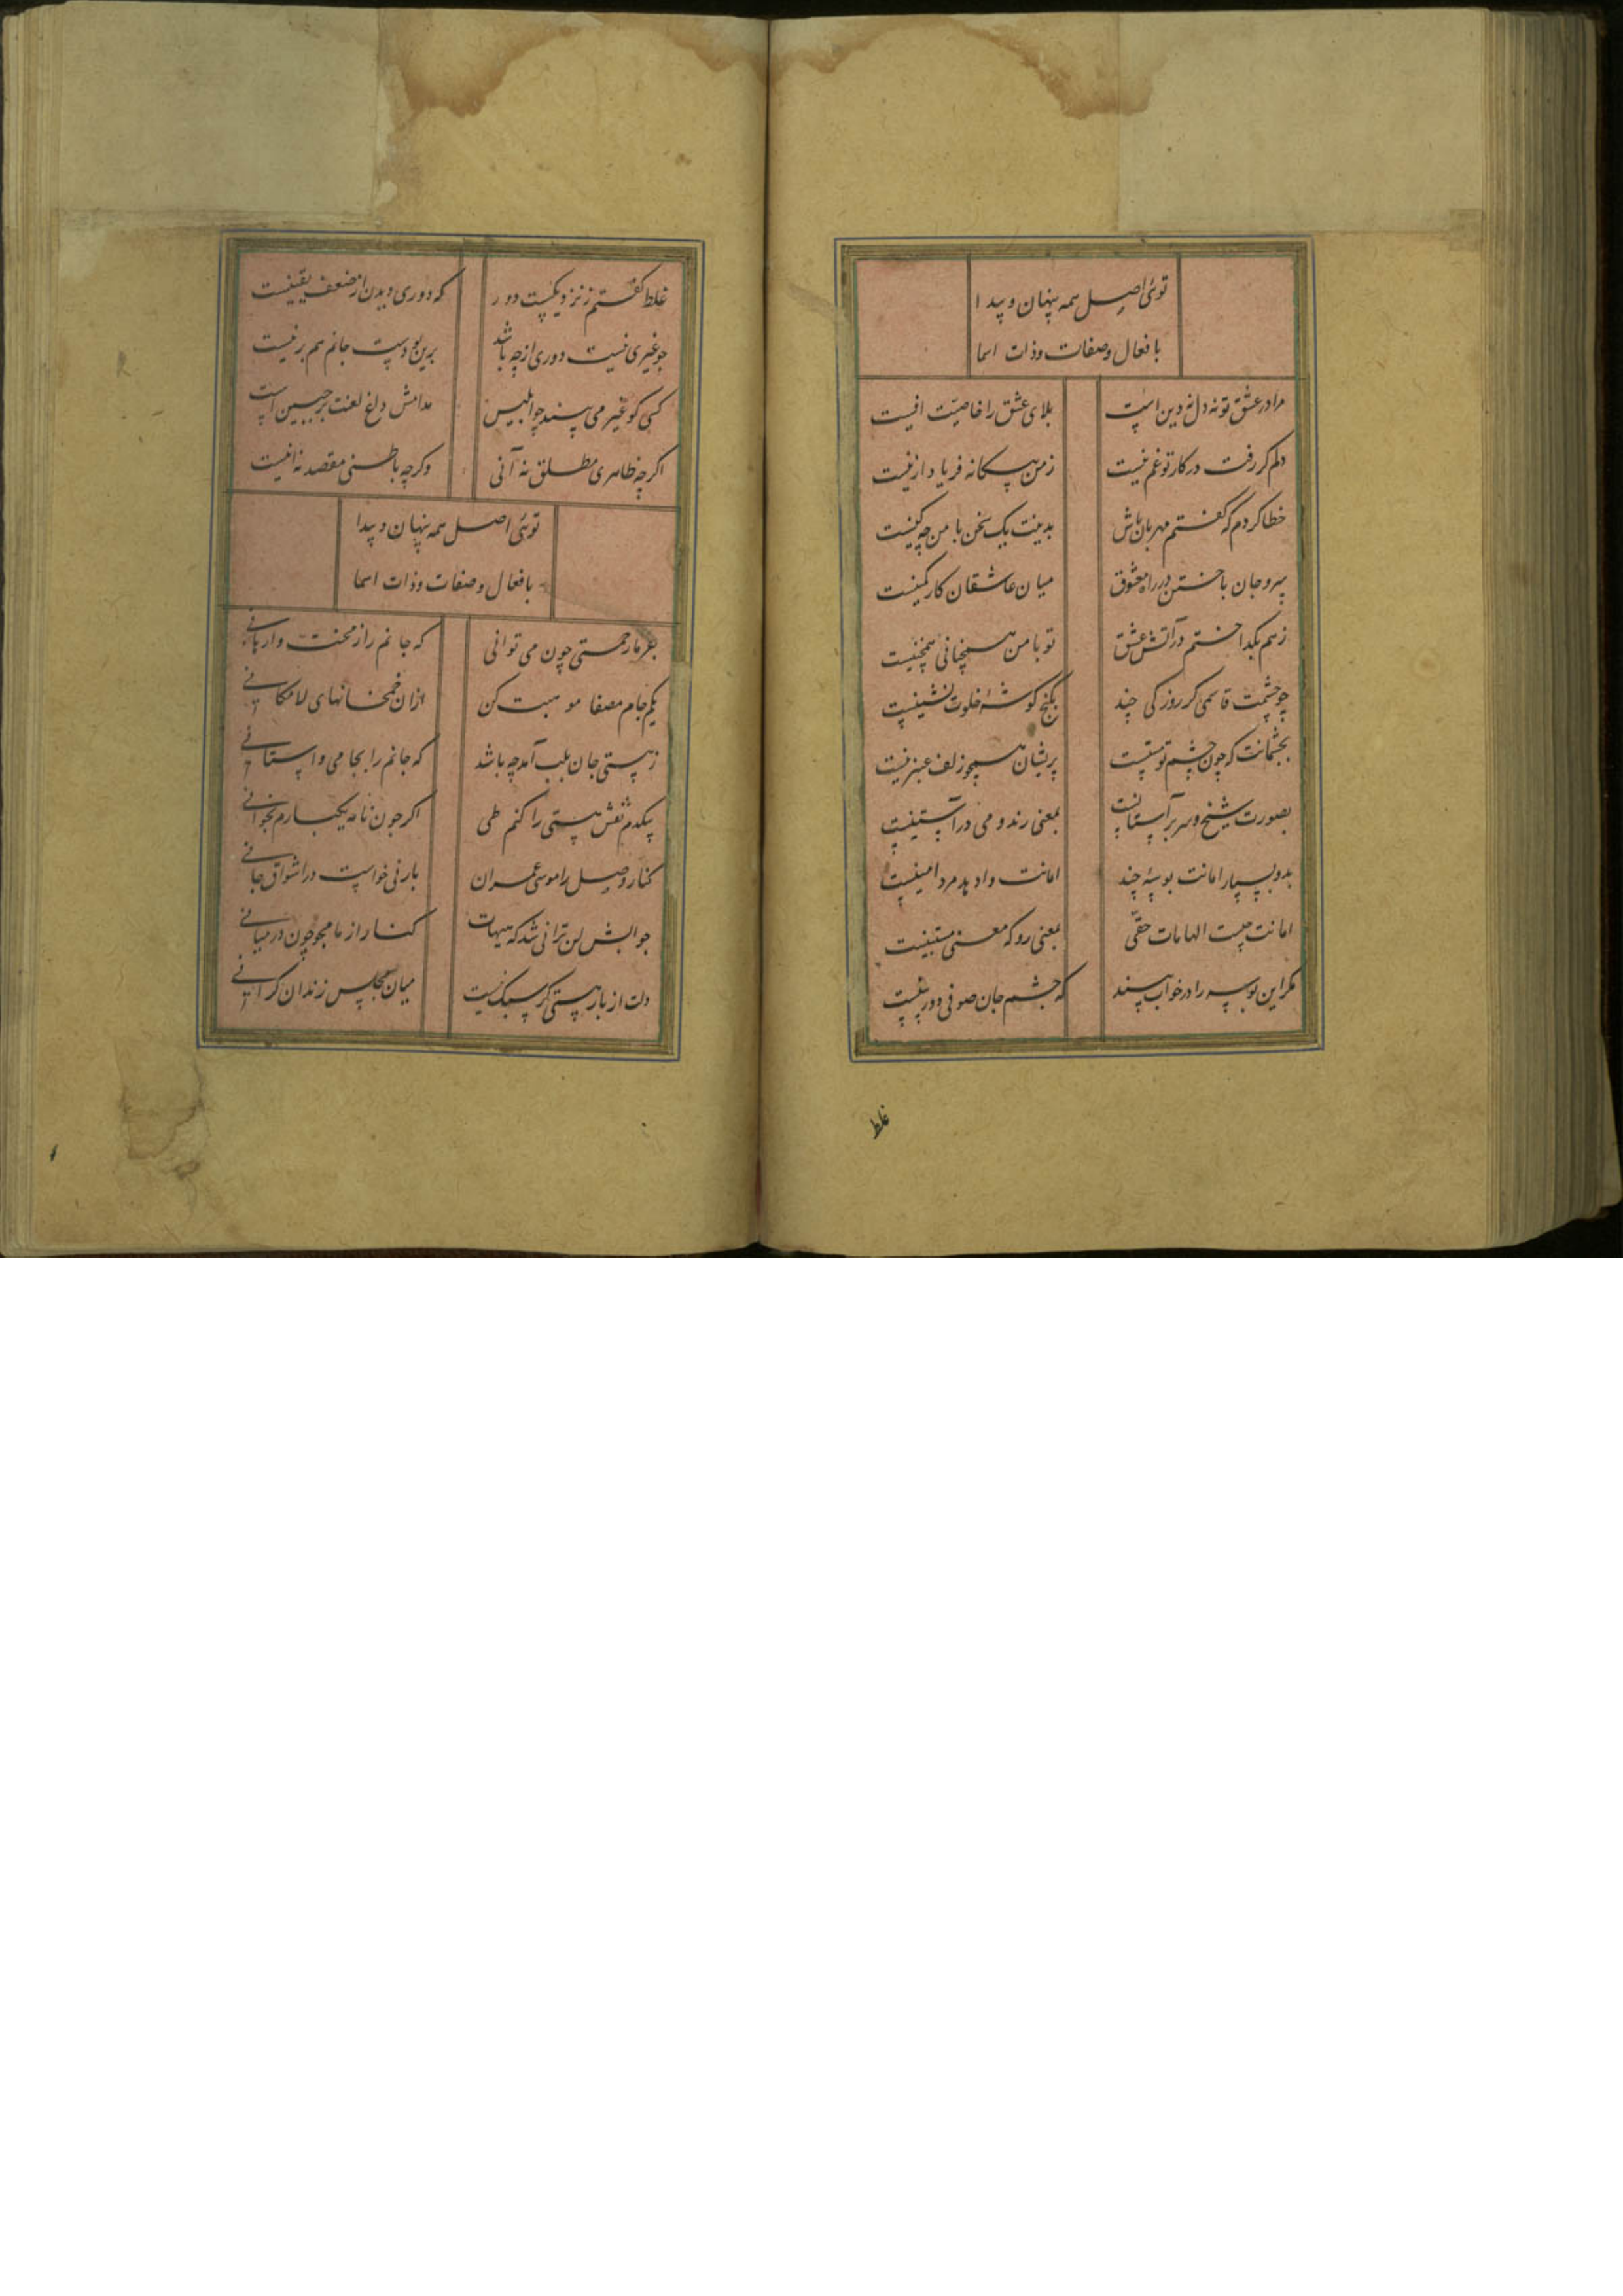 توئی اصل همه پنهان و پیدا
بافعال وصفات وذات اسما
مرا در عشق تو نه دل نه دین است بلای عشق را خاصیت اینست
دلم کر رفت در کار تو غم نیست زمن فریاد ازنیست
خطا کردم که کفتم مهربان باش بدینت یک سخن با من چه کینست
سر و جان باختن در راه معشوق میان عاشقان کار کمینست
زهم بکداختم در آتش عشق تو با من همچنانی همچنینست
چو چشمت قائمی کر روزکی چند بکنج کوشهٔ خلوت نشینست
بچشمانت که چون چشم تو مستست پریشان همچو زلف عنبرینست
بصورت شیخ و سر بر آستانست بمعنی رند و می در آستینست
بدو بسپار امانت بوسهٔ چند امانت داد به مرد امینست
امانت چیست الهامات حقی بمعنی رو که معنی مستبینست
مکر این بوسه را در خواب بیند که چشم جان صوفی دوربینست
غلط
غلط کفتم زنزدیکیست دور که دوری دیدن از ضعف یقینست
چو غیری نیست دوری از چه باشد برین بودست جانم هم برینست
کسی کو غیر می بیند چو ابلیس مدامش داغ لعنت بر جبین است
اکر چه ظاهری مطلق نه آنی وکر چه باطنی مقصد نه اینست
توئی اصل همه پنهان و پیدا
بافعال وصفات وذات اسما
بفرما رحمتی چون می توانی که جانم را زمحنت وارهانی
یکی جام مصفا موهبت کن ازان خمخانهای لامکانی
زهستی جان بلب آمد چه باشد که جانم را بجامی واستانی
بیکدم نقش هستی را کنم طی اکر چون نامه یکبارم بخوانی
کنار وصل را موسی عمران بارنی خواست در اشواق جانی
جوابش لن ترانی شد که هیهات کنار از ما مجو چون در میانی
دلت از بار هستی کر سبک نیست میان مجلس رندان کرانی